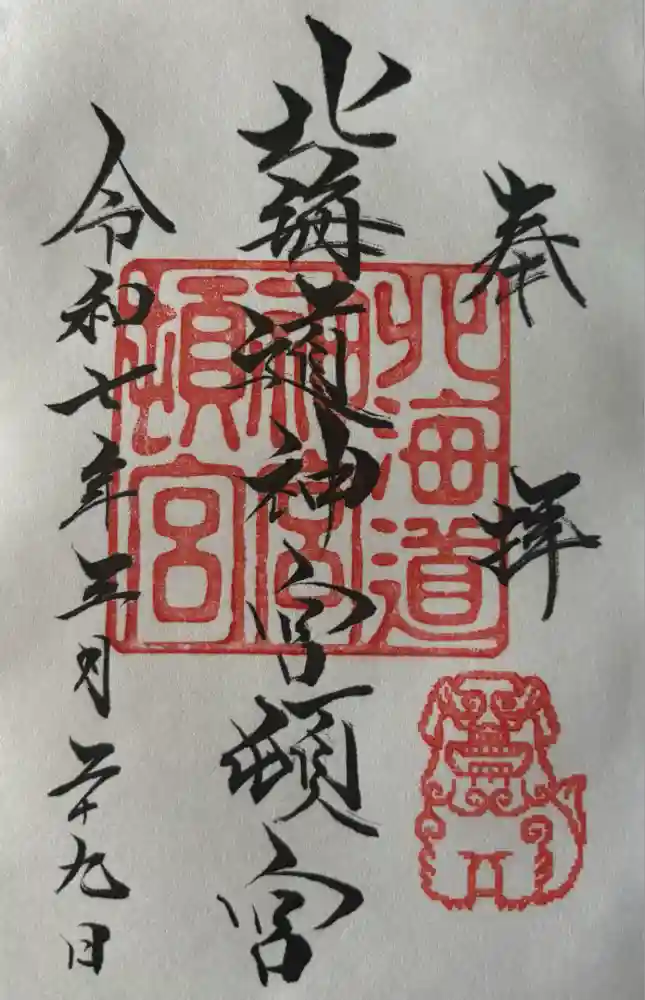 奉拝
北海道神宮頓宮
北海道
神宮
頓宮
令和七年三月二十九日